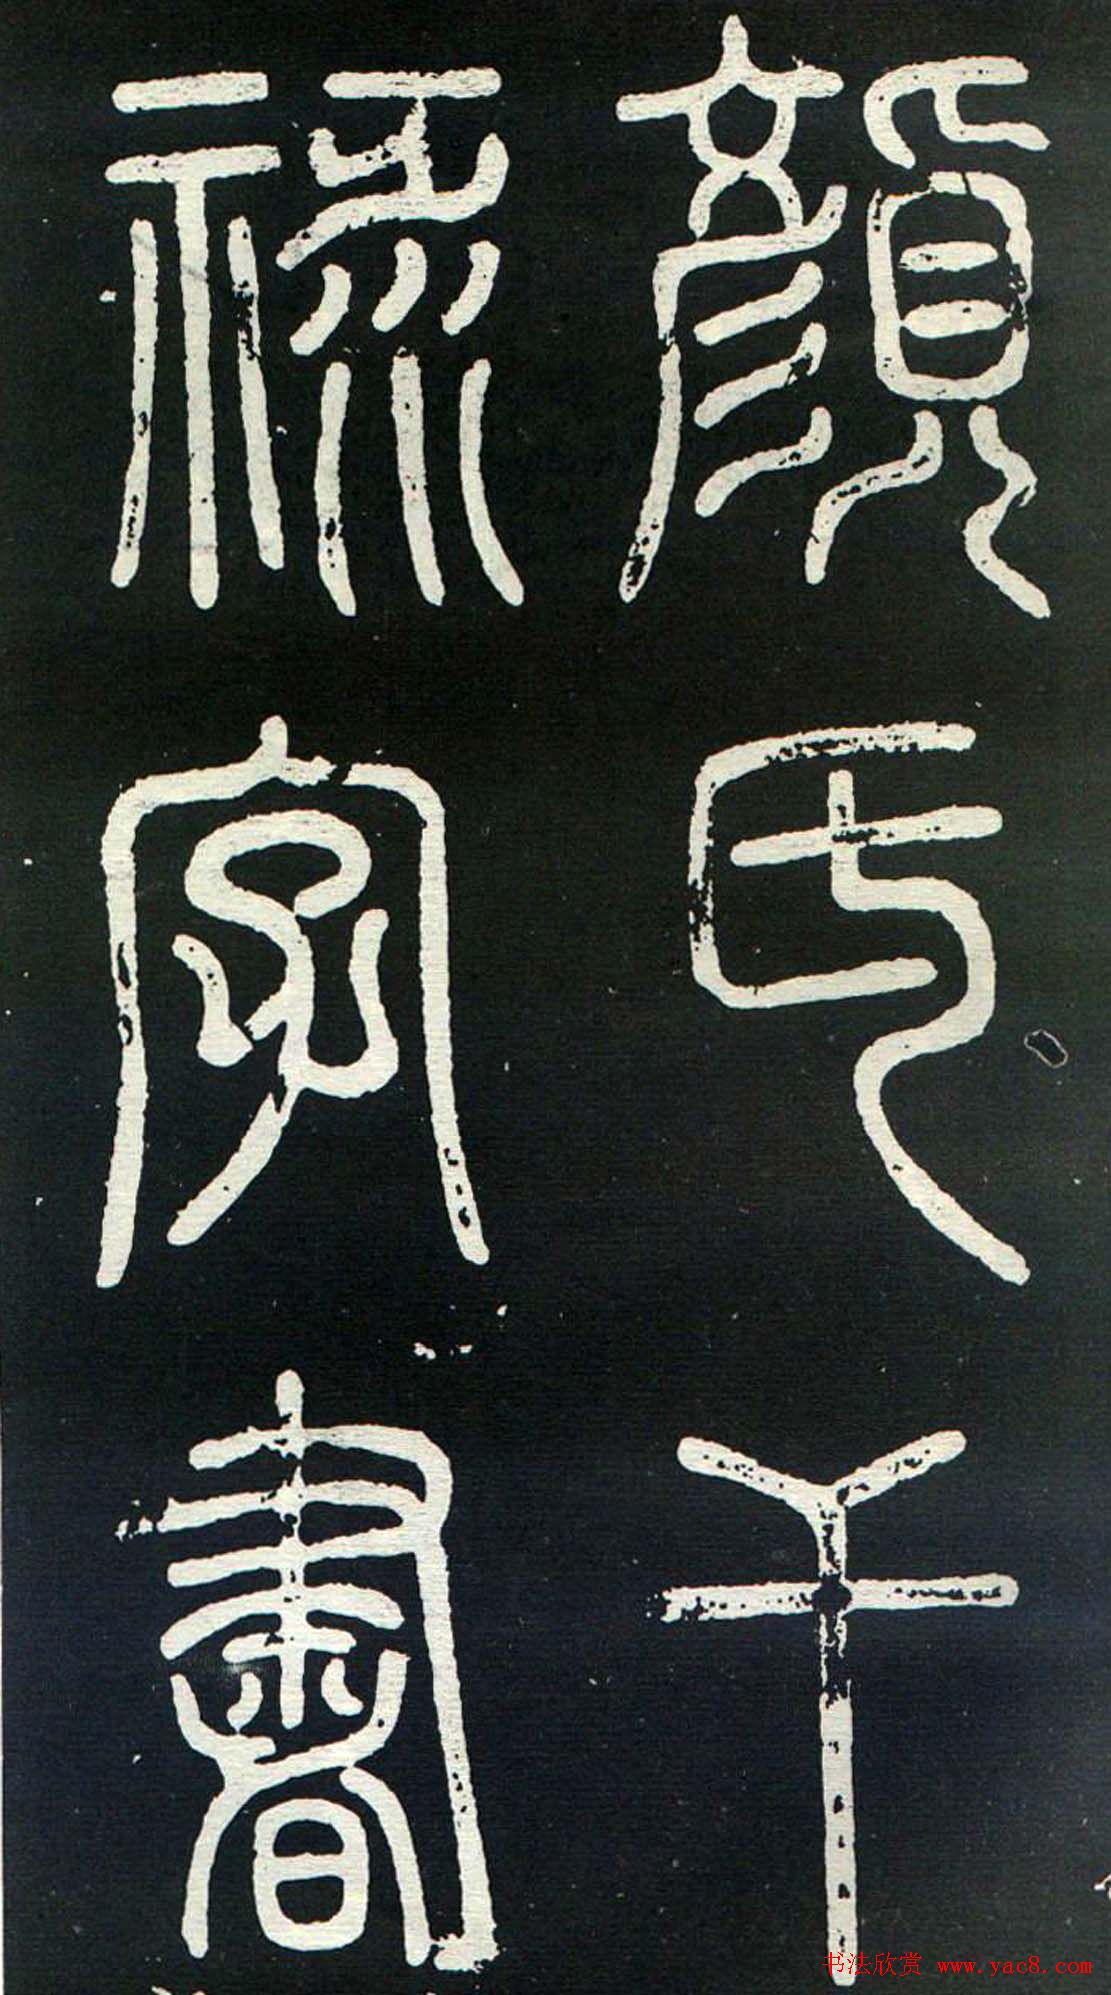 顏氏干
祿字書
书法欣赏 www.yac8.com